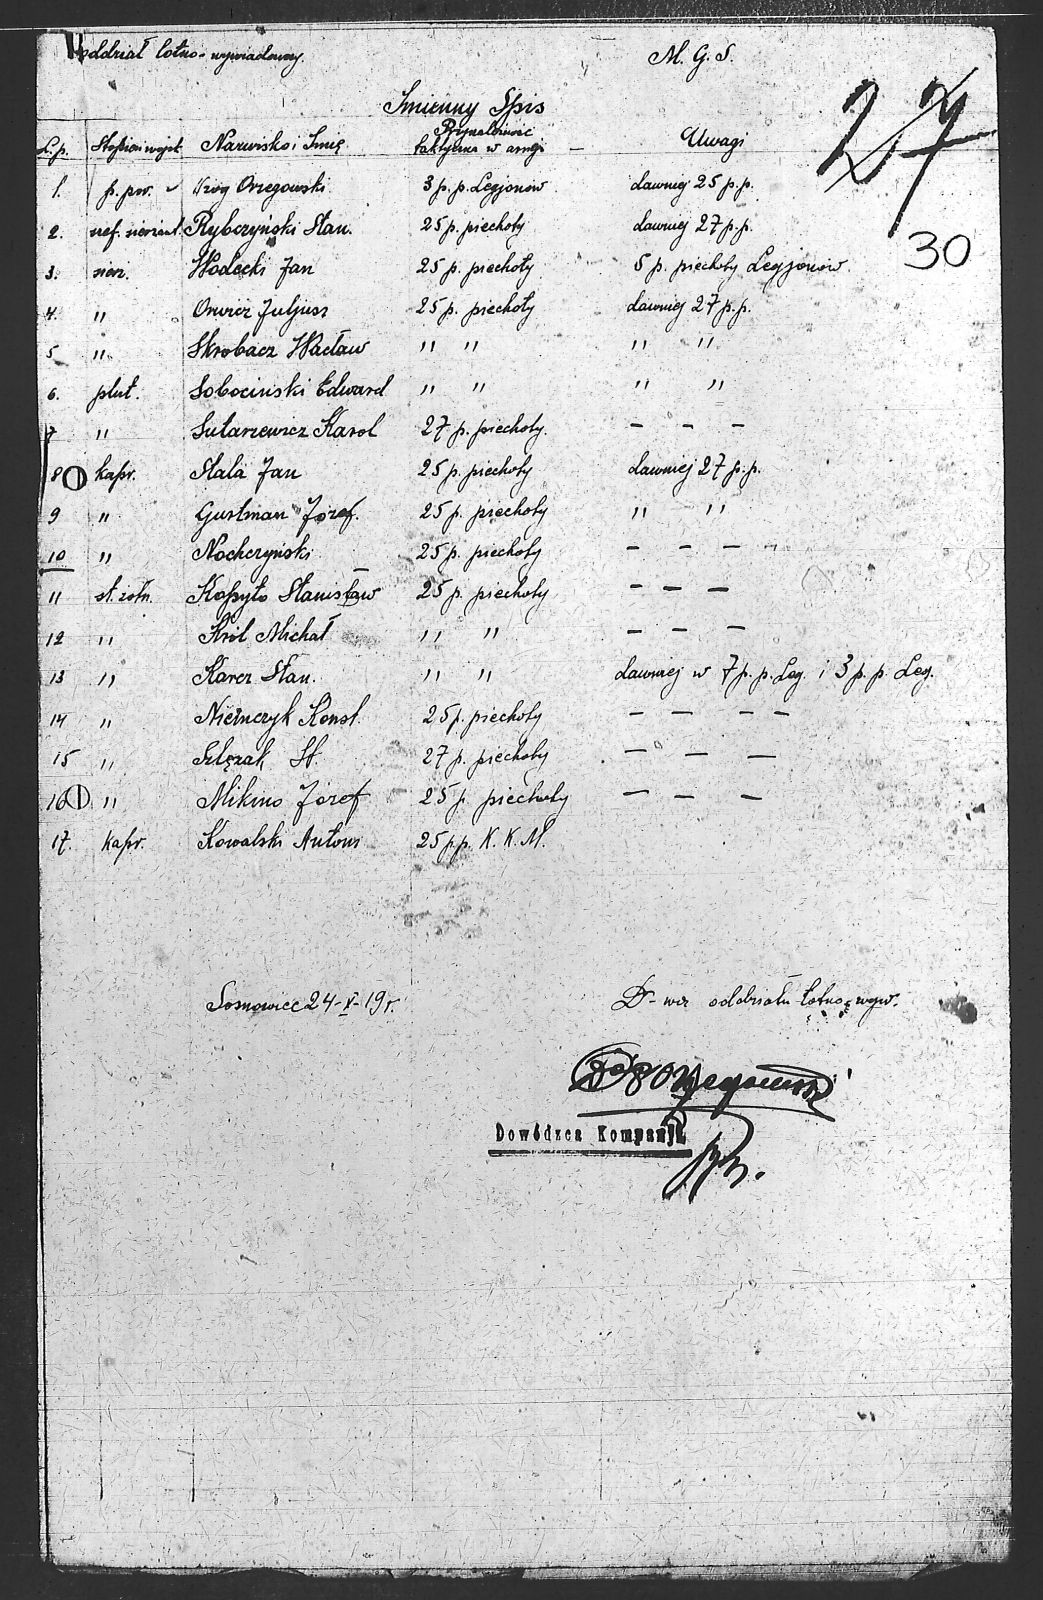 Oddział lotno-wywiadowczy. M. G. S.
Imienny Spis
27
L.p. Stopień wojsk. Nazwisko i Imię Przynależność taktyczna w armji Uwagi
1. p. por. Orzegowski 3 p. p. Legjonów dawniej 25 p.p.
30
2. sierżant Rybczyński Stan. 25 p. piechoty dawniej 27 p.p.
3. sierż. Wodecki Jan 25 p. piechoty 5 p. piechoty Legjonów.
4. " Juljusz 25 p. piechoty dawniej 27 p.p.
5 " Skrobacz Wacław " " " "
6. plut. Sobociński Edward " " " "
7 " Karol 27 p. piechoty. — — —
8 kapr. Stala Jan 25 p. piechoty dawniej 27 p.p.
9 " Gustman Józef. 25 p. piechoty " "
10 " Nochczyński 25 p. piechoty — — —
11 st. żołn. Kopyto Stanisław 25 p. piechoty — — —
12 " Król Michał " " — — —
13 " Karcz Stan. " " dawniej w 7 p. p. Leg. i 3 p. p. Leg.
14 " Niemczyk Konst. 25 p. piechoty — — — —
15 " Ślęzak St. 27 p. piechoty — — —
16 " Józef 25 p. piechoty — — —
17. kapr. Kowalski Antoni 25 p.p. K. K. M.
Sosnowiec 24-V-19 r. D-wca oddziału lotno-wyw.
Dowódzca Kompanji.